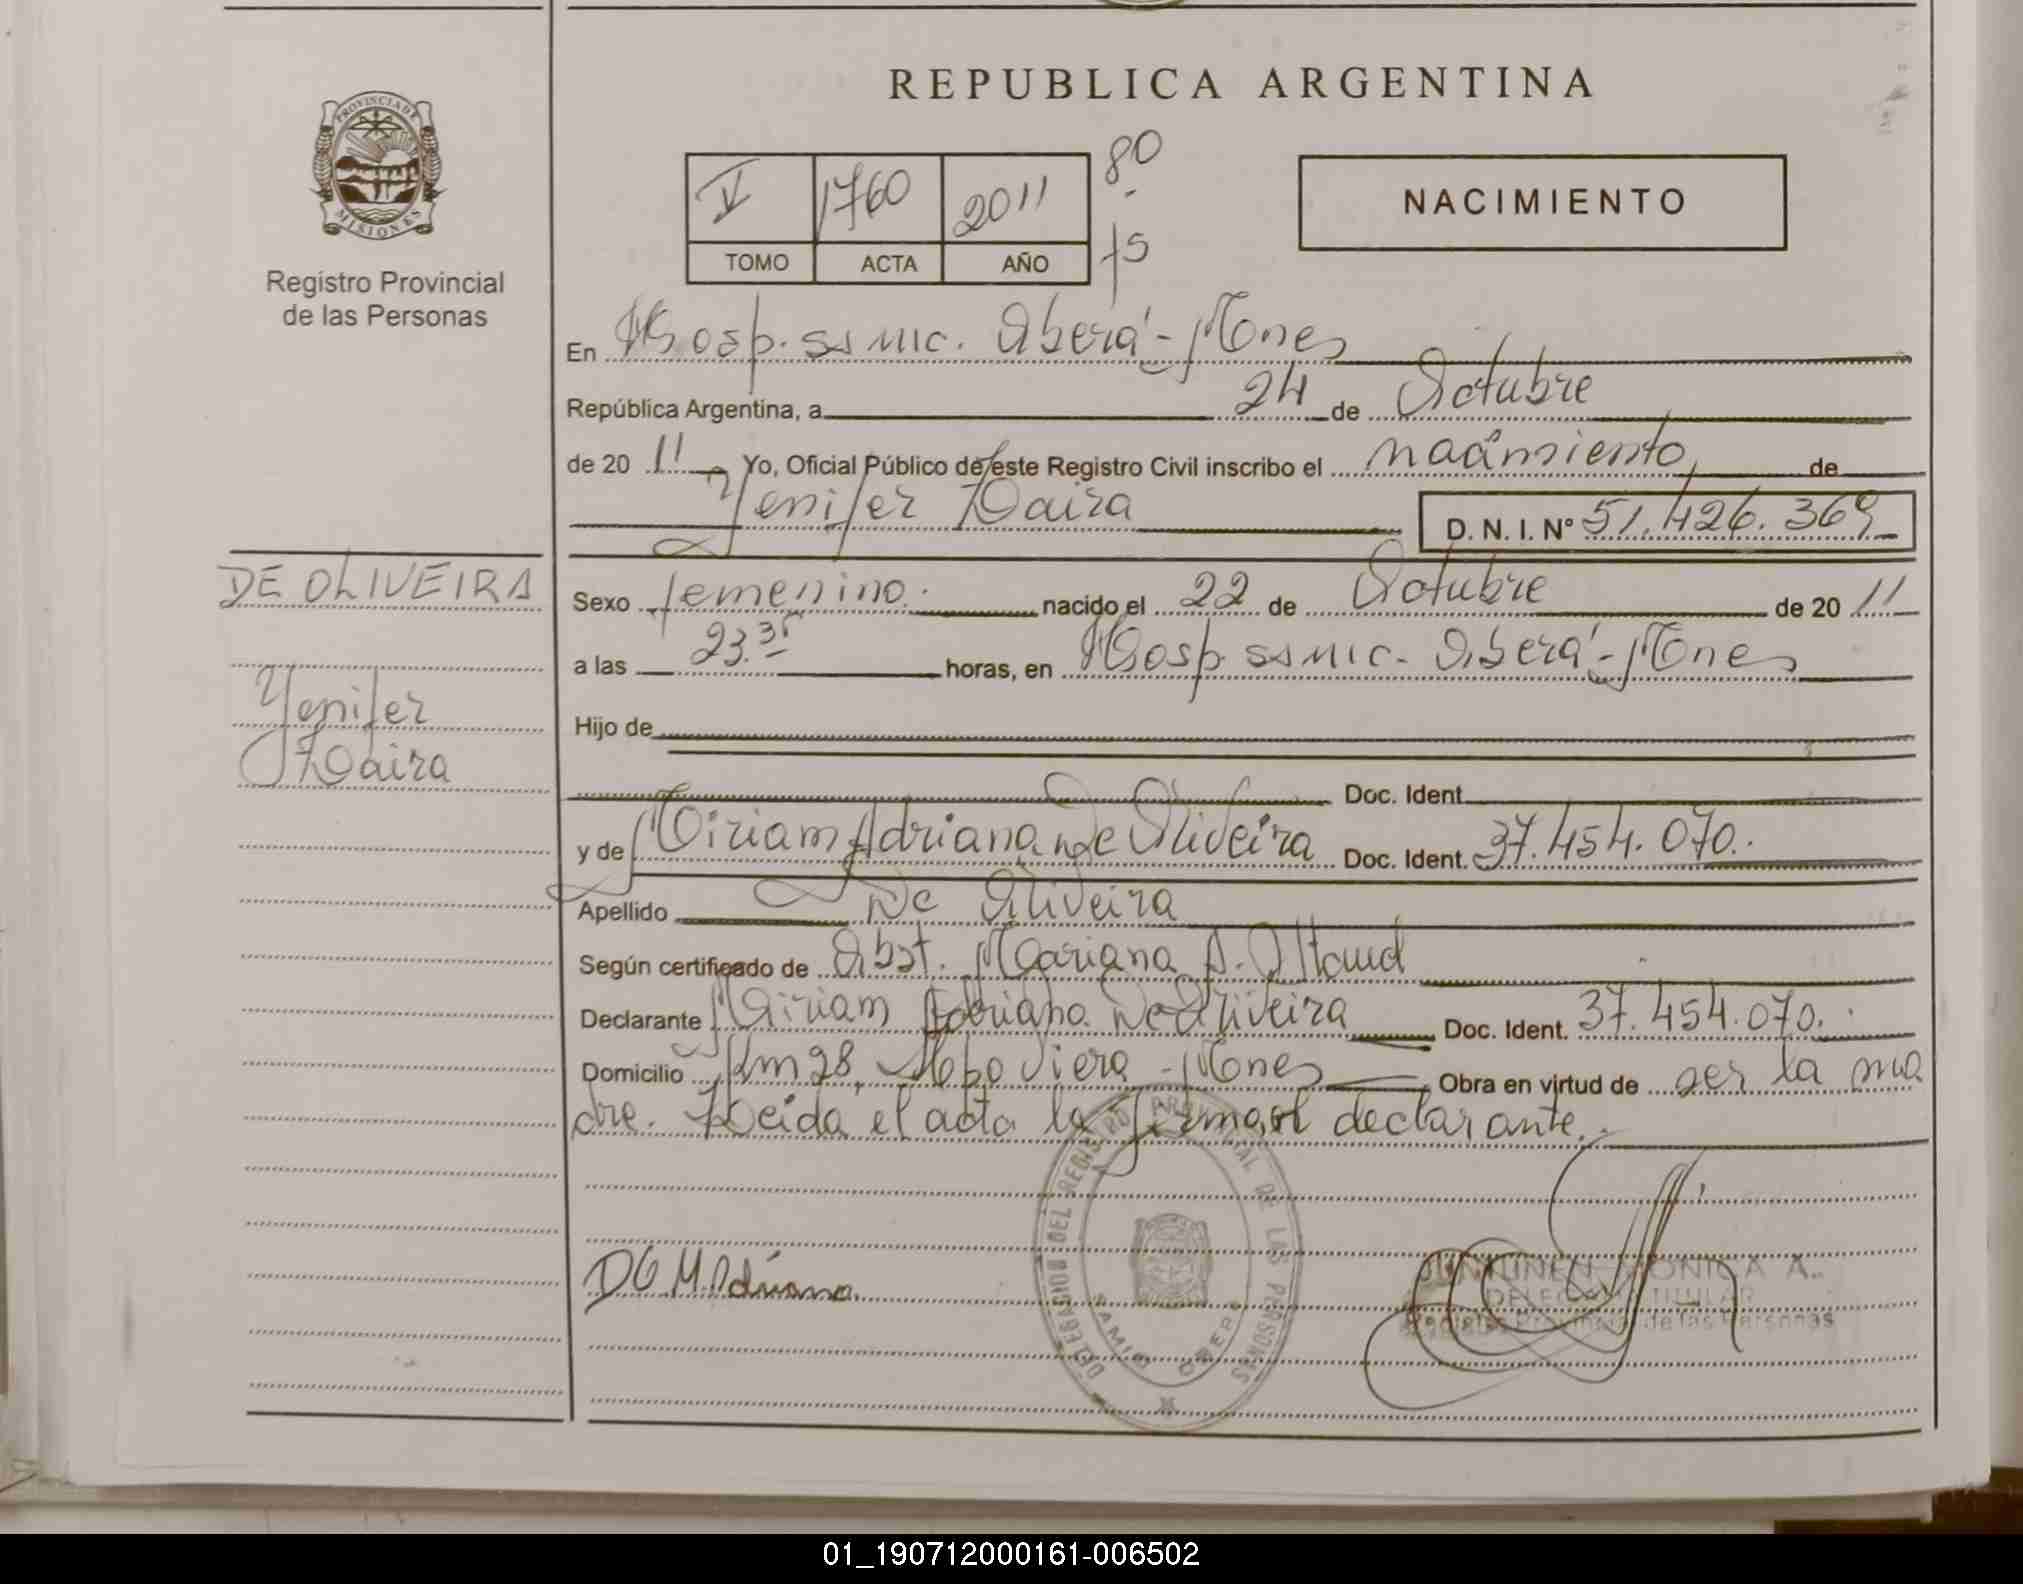 REPUBLICA ARGENTINA
PROVINCIA DE
MISIONES
Registro Provincial
de las Personas
V 1760 2011 80
TOMO ACTA AÑO 75
NACIMIENTO
En Hosp. ssmic. Oberá - Mones
República Argentina, a 24 de Octubre
de 20 11 Yo, Oficial Público de este Registro Civil inscribo el nacimiento de
Yenifer Daira D. N. I. Nº 51.426.369
DE OLIVEIRA
Yenifer
Daira
Sexo femenino. nacido el 22 de Octubre de 20 11
a las 23.35 horas, en Hosp. ssmic. Oberá - Mones
Hijo de
Doc. Ident.
y de Miriam Adriana De Oliveira Doc. Ident. 37.454.070.
Apellido De Oliveira
Según certificado de Obst. Mariana A.
Declarante Miriam Adriana De Oliveira Doc. Ident. 37.454.070.
Domicilio Km 28, Cpo Viera - Mones Obra en virtud de ser la ma
dre. Leida el acta la firma el declarante.
DELEGACION DEL REGISTRO PROVINCIAL DE LAS PERSONAS
OBERA
DO. M. Adriana
MONICA A.
DELEGADA TITULAR
Registro Provincial de las Personas
01_190712000161-006502